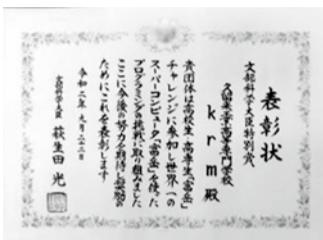 表彰状
文部科学大臣特別賞
久留米工業高等専門学校
krm殿
貴団体は高校生・高専生「富岳」
チャレンジに参加し世界一の
スーパーコンピュータ「富岳」を使った
プログラミングの挑戦に取り組みました
ここに今後の努力を期待し奨励の
ためにこれを表彰します
令和三年九月二十三日
文部科学大臣 萩生田光一